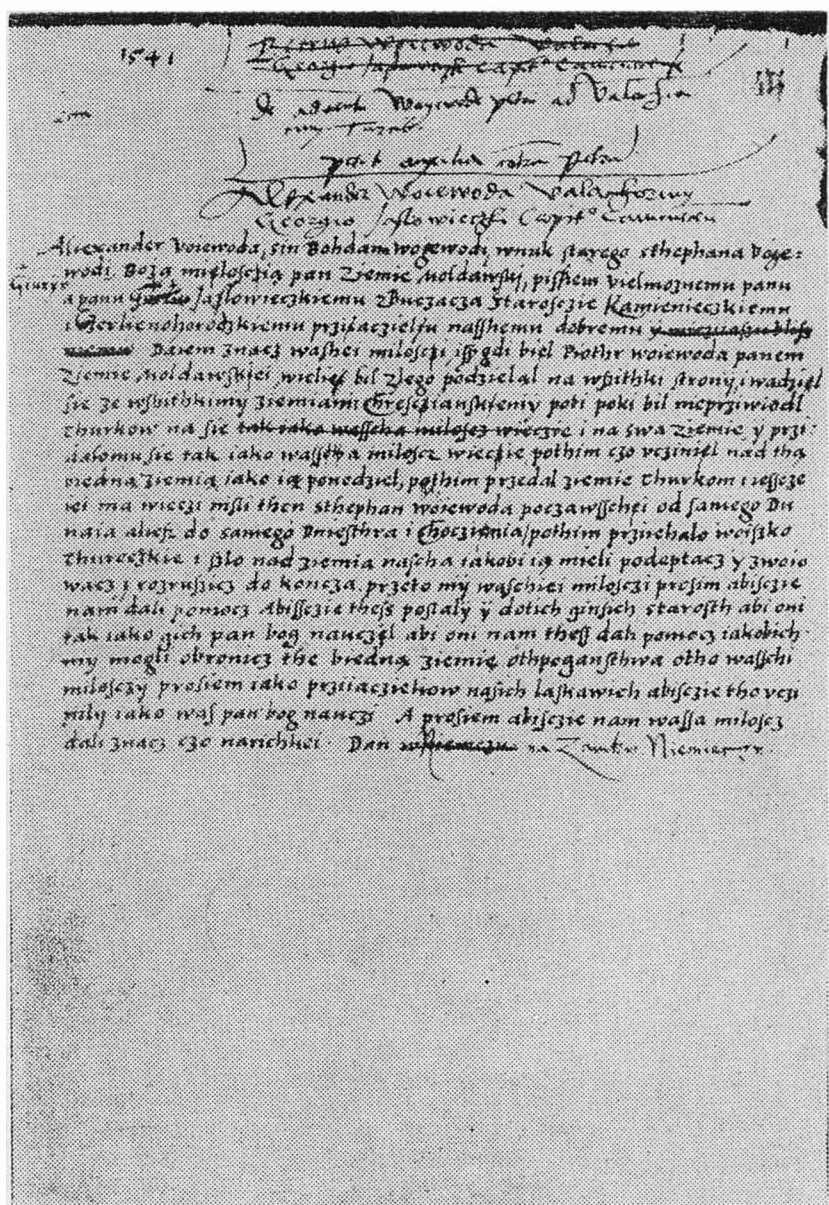 1541
Petrus Woiewoda Valach
Georgio Jaslowieczki Capit° Camenecen
De adventu Woyewode petri ad Valachia
petit auxilia contra petru
Alexander Woiewoda Valachorum
Georgio Jaslowieczki Capit° Camenecen
Aliexander voiewoda, sin Bohdana wogewodi, wnuk starego sthephana voge:
wodi. Bożą miełosczią pan ziemie Moldawskj, pisshem vielmoznemu panu
Giurgi
a panu Jaslowieczkiemu z Buczacza starosczie Kamienieczkiemu
i Czerlienohorodzkiemu przijaczielsu nasshemu dobremu
Daiem znacz washei miloschi, iss gdi biel Piothr woiewoda panem
ziemie Moldawskiei, wieliess bil zlego podzielal na wssithki strony, i wadziel
sie ze wssithkimy ziemiami Chresczianskiemy poti poki bil nieprziwiodl
thurkow na sie tak iako wasscha milosez wieczie i na swa ziemie y przi
dalomu sie tak iako wasscha milosez wieczie pothim czo vcziniel nad thą
biedną ziemią iako ią ponedziel, pothim przedal ziemie thurkom i iesscze
iei ma wieczi nisli then sthephan woiewoda poczawsschei od samego Du
naia aliess do samego Dniesthra i Choczimia / pothim prziechalo woisko
thureczkie i sslo nad ziemią nascha iakobi ią mieli podeptacz y zwoio
wacz j rozrussicz do koncza, przeto my waschiei milosczi prosim abisczie
nam dali pomocz Abissczie thess poslaly ÿ dotich ginsich starosth abi oni
tak iako gich pan bog nauczęl abi oni nam thess dali pomocz iakobich
my mogli obronicz the biedną ziemię othpogansthwa otho wasschi
milosczy prosiem iako prziiacziełow nasich laskawich abisczie tho vczi
nily iako was pan bog nauczi A prosiem abisczie nam wassa milosez
dali znacz czo narichlei. Dan na Zamku Niemiecz